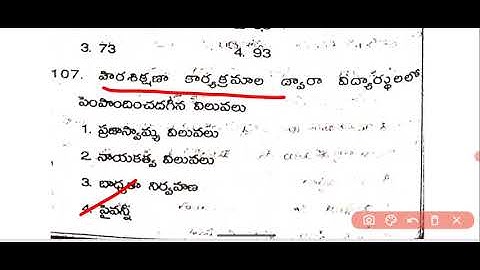 3. 73 4. 93
107. పౌరశిక్షణా కార్యక్రమాల ద్వారా విద్యార్థులలో
పెంపొందించదగిన విలువలు
1. ప్రజాస్వామ్య విలువలు
2. నాయకత్వ విలువలు
3. బాధ్యతా నిర్వహణ
4. పైవన్నీ